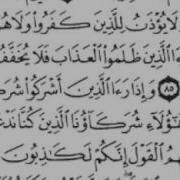 لَا يُؤْذَنُ لِلَّذِينَ كَفَرُوا۟ وَلَا هُمْ
ءَا ٱلَّذِينَ ظَلَمُوا۟ ٱلْعَذَابَ فَلَا يُخَفَّفُ
﴿٨٥﴾ وَإِذَا رَءَا ٱلَّذِينَ أَشْرَكُوا۟ شُرَكَ
هَٰٓؤُلَآءِ شُرَكَآؤُنَا ٱلَّذِينَ كُنَّا نَدْعُ
هِمُ ٱلْقَوْلَ إِنَّكُمْ لَكَٰذِبُونَ